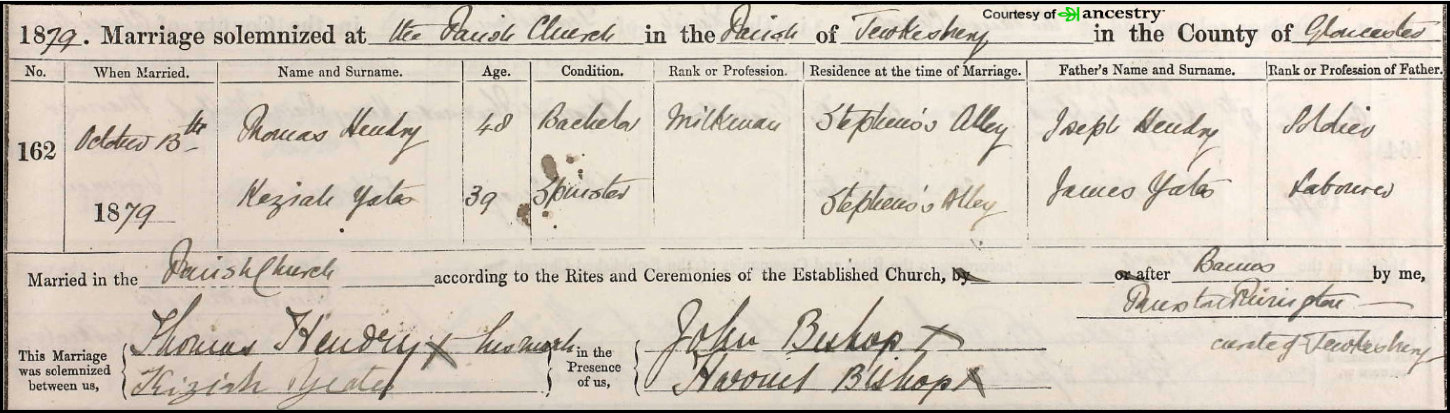 Courtesy of ancestry
1879. Marriage solemnized at the Parish Church in the Parish of Tewkesbury in the County of Gloucester
No. When Married. Name and Surname. Age. Condition. Rank or Profession. Residence at the time of Marriage. Father's Name and Surname. Rank or Profession of Father.
162 October 13th Thomas Hendry 48 Bachelor Milkman Stephens's Alley Joseph Hendry Soldier
1879 Keziah Yates 39 Spinster Stephens's Alley James Yates Labourer
Married in the Parish Church according to the Rites and Ceremonies of the Established Church, by or after Banns by me,
curate of Tewkesbury
This Marriage was solemnized between us,
Thomas Hendry X his mark
Kiziah Yates
in the Presence of us,
John Bishop X
Harriet Bishop X